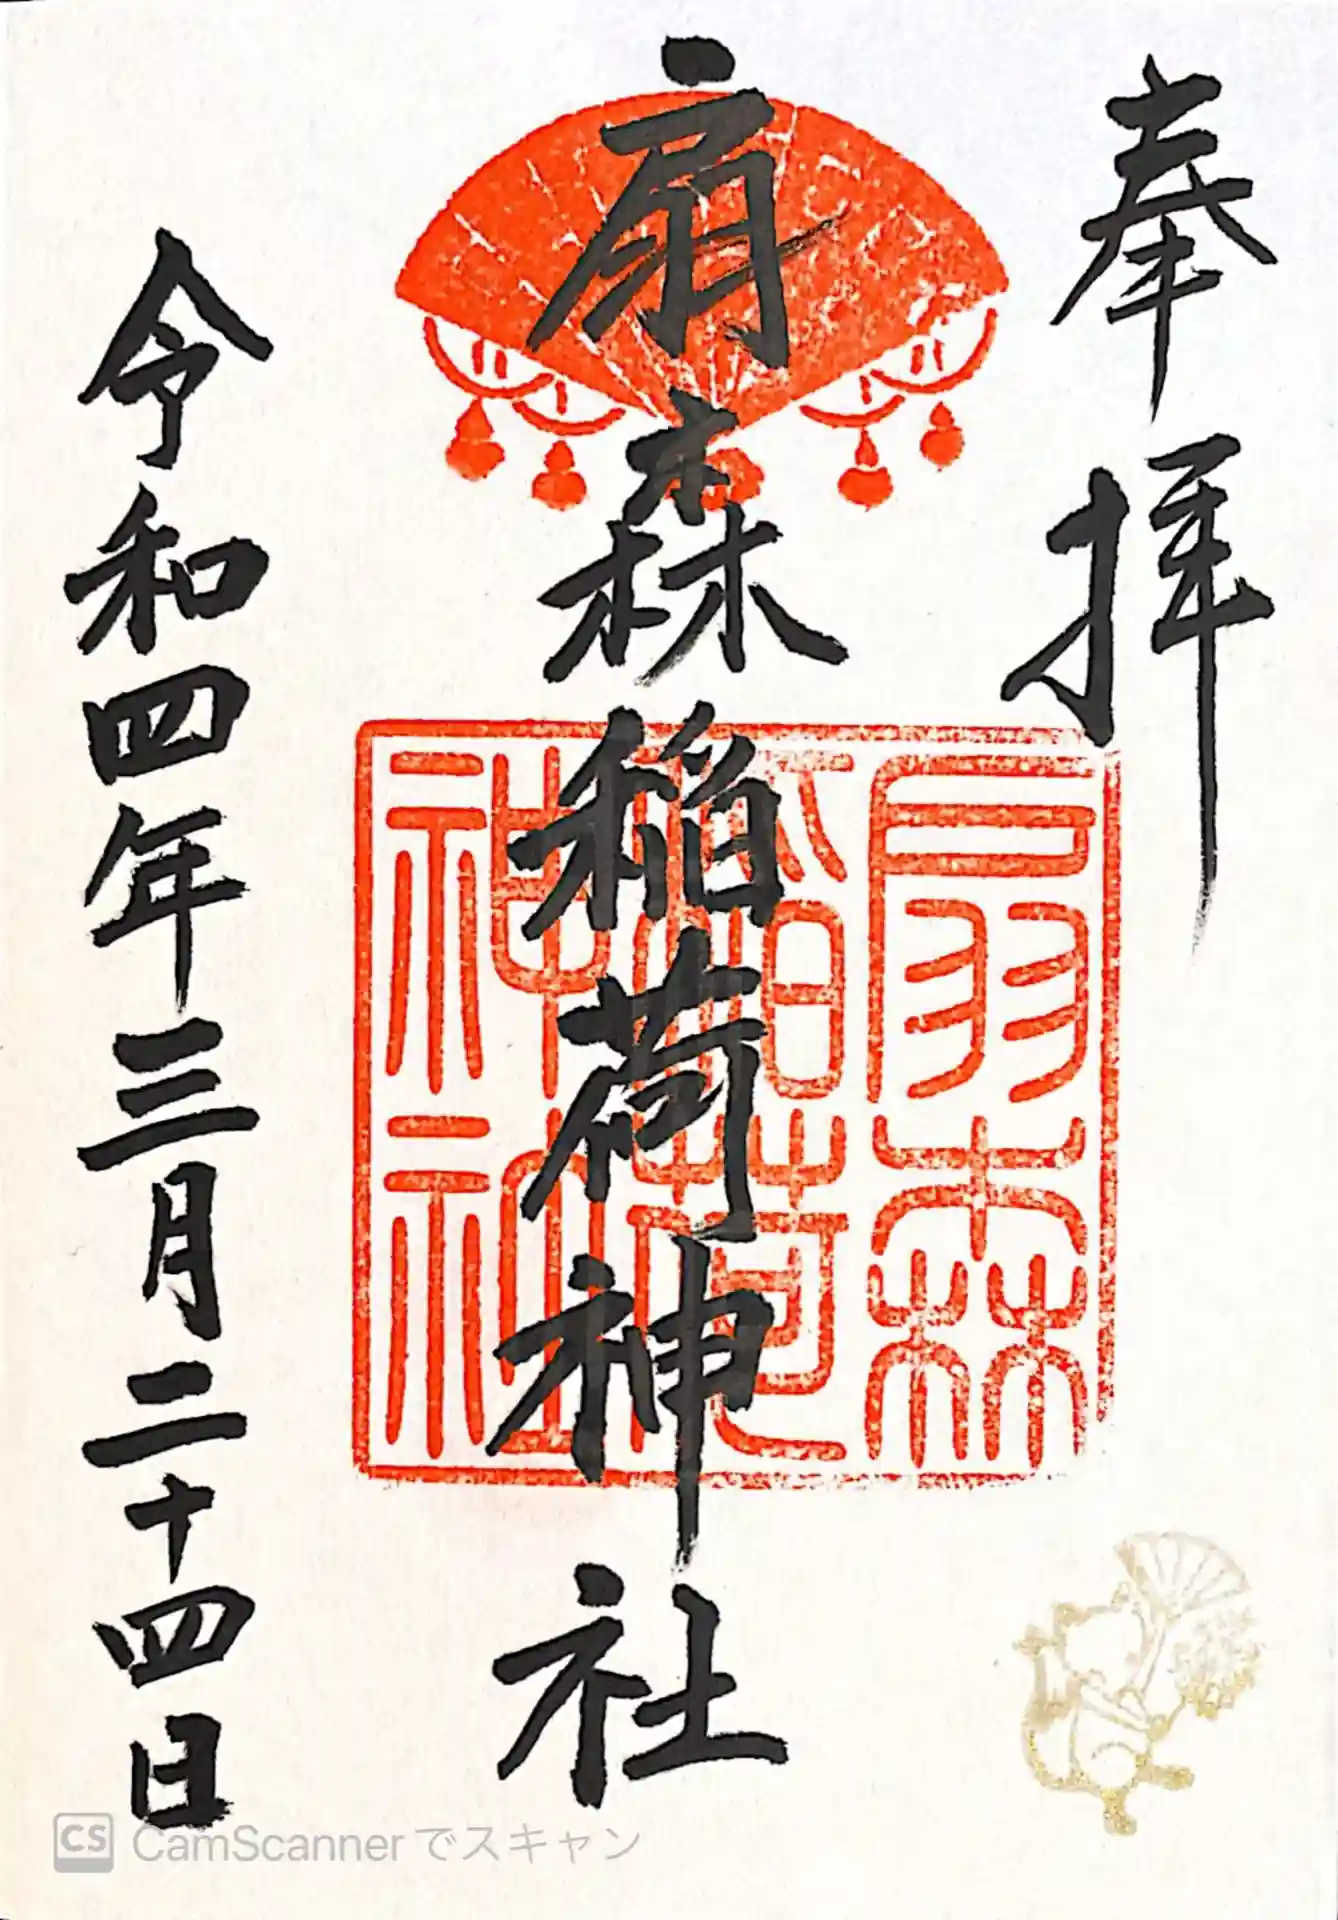 奉拝
扇森稲荷神社
扇森
稲荷
神社
令和四年三月二十四日
CS CamScannerでスキャン